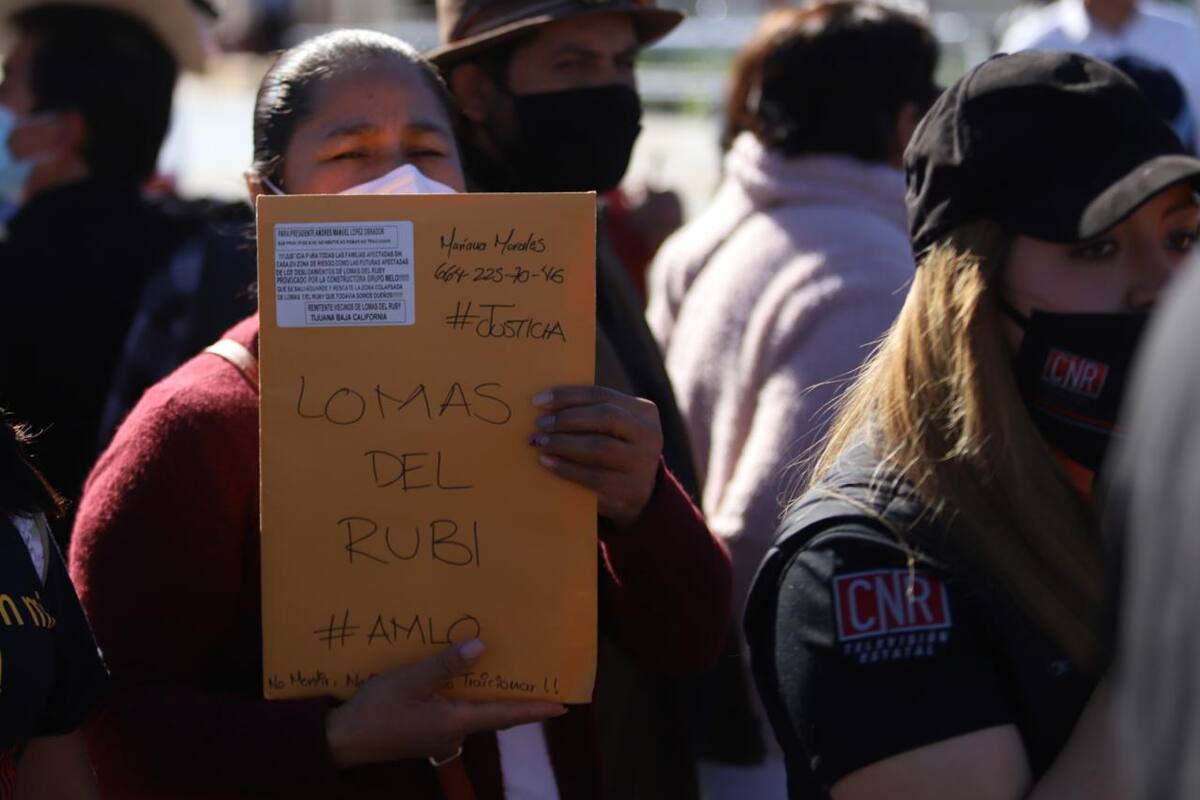 PARA PRESIDENTE ANDRES MANUEL LOPEZ OBRADOR
!!!JUSTICIA PARA TODAS LAS FAMILIAS AFECTADAS EN
CASA EN ZONA DE RIESGO COMO LAS FUTURAS AFECTADAS
DE LOS DESLIZAMIENTOS DE LOMAS DEL RUBY
PROVOCADO POR LA CONSTRUCTORA GRUPO MELO!!!
QUE SE SALVAGUARDE Y RESCATE LA ZONA COLAPSADA
DE LOMAS DEL RUBY QUE TODAVIA SOMOS DUEÑOS!!!!
REMITENTE VECINOS DE LOMAS DEL RUBY
TIJUANA BAJA CALIFORNIA
Mariana Morales
664-225-70-46
#JUSTICIA
LOMAS
DEL
RUBI
#AMLO
No Mentir, No Traicionar!!
CNR
CNR
TELEVISION
ESTATAL